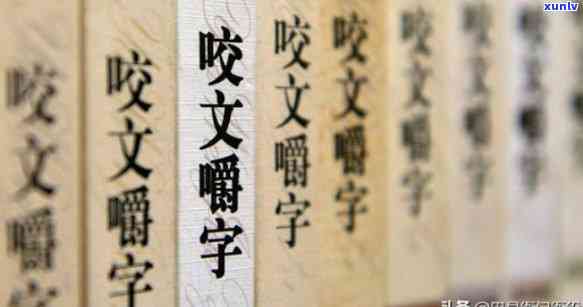 xunlv
咬文嚼字
咬文嚼字
咬文嚼字
咬文嚼字
咬文嚼字
咬文嚼字
咬文嚼字
咬文嚼字